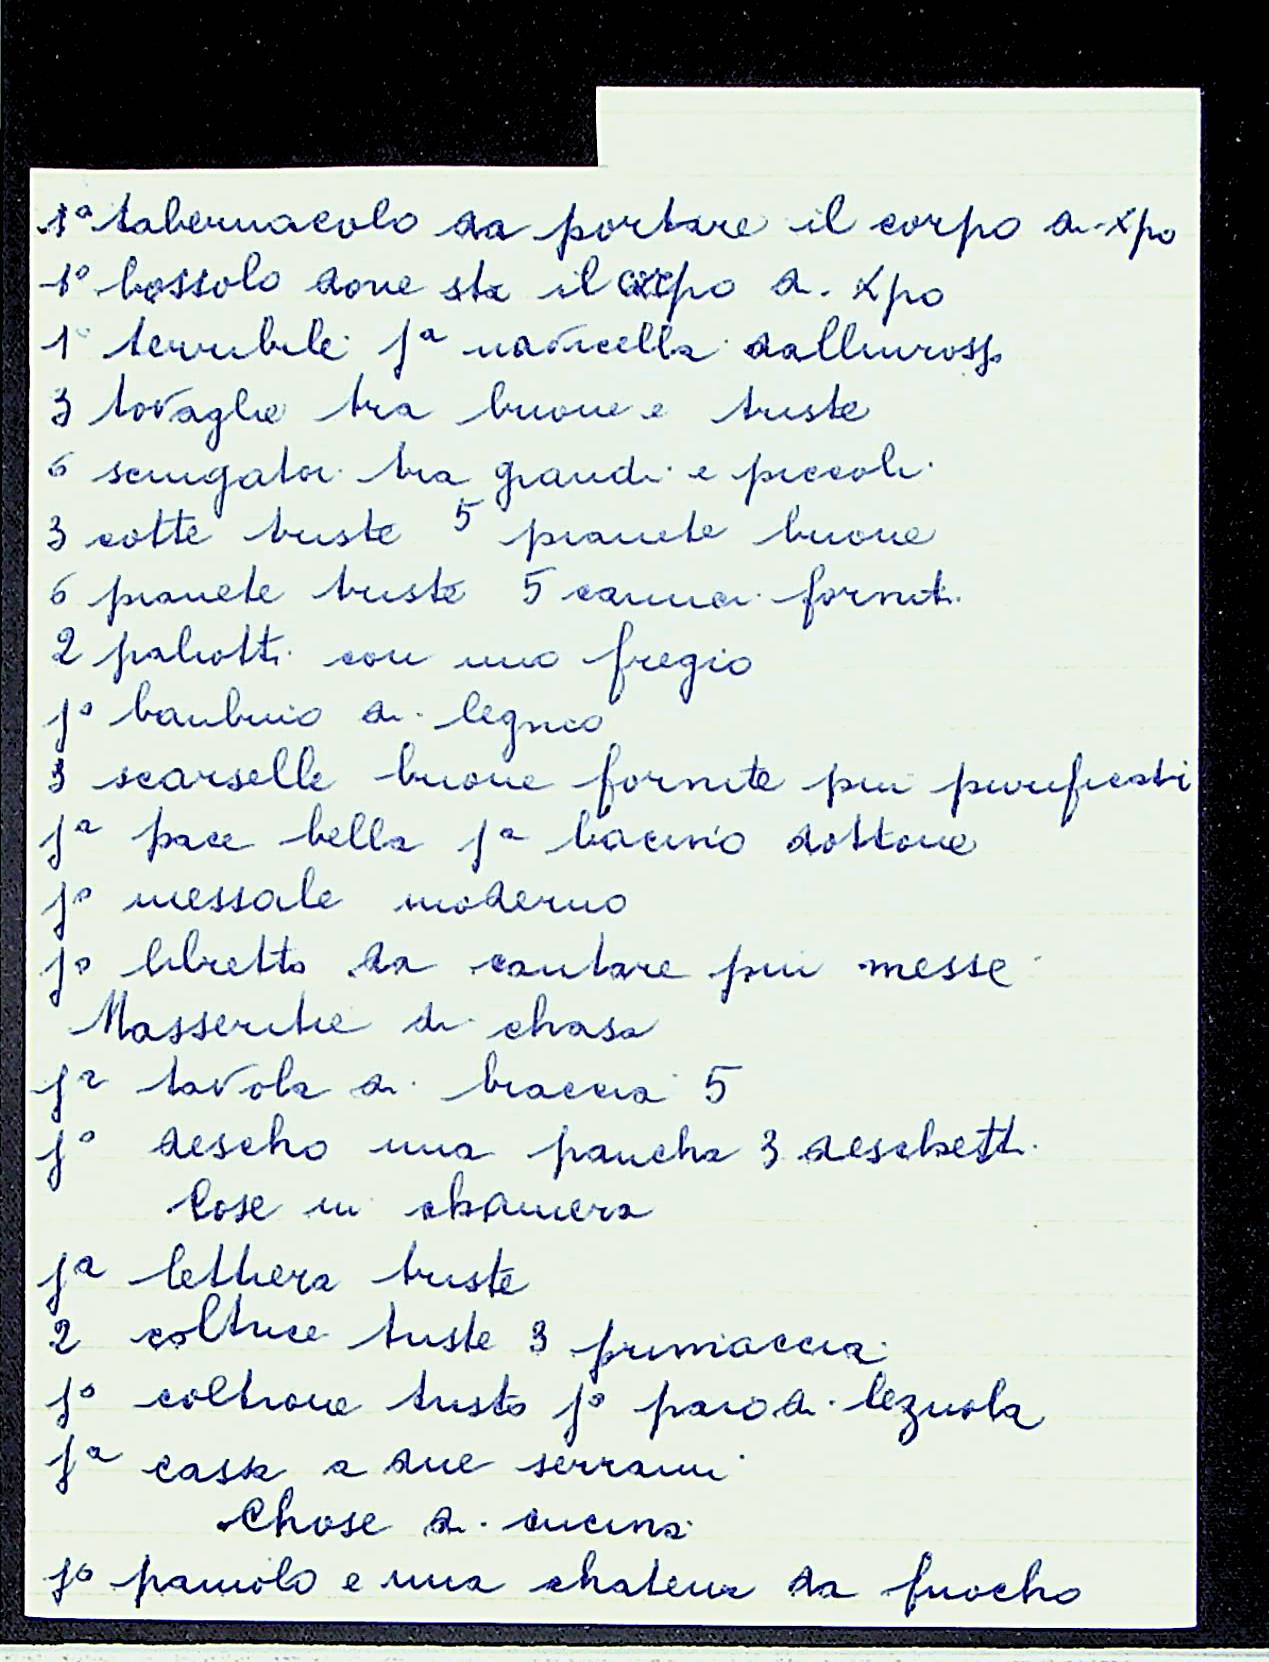 1ª tabernacolo da portare il corpo di xpo
1º bossolo dove sta il corpo di xpo
1º terribile jª navicella dallincrosso
3 tovaglie tra buone e triste
6 sciugatoi tra grandi e piccoli
3 cotte triste 5 pianete buone
6 pianete triste 5 camici forniti
2 paliotti con uno fregio
jº banbino di legnio
3 scarselle buone fornite piu purificati
jª pace bella jª bacino dottone
jº messale moderno
jº libretto da cantare piu messe
Masseritie di chasa
jª tavola di braccia 5
jº descho una pancha 3 deschetti
Cose in chamera
jª lettiera triste
2 coltrice triste 3 primaccia
jº coltrone tristo jº paio di lezuola
jª cassa a due serrami
Chose di cucina
jº paiuolo e una chatena da fuocho